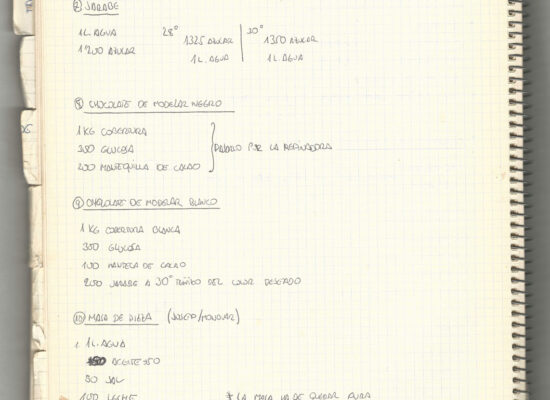 ⑦ JARABE
1L. AGUA 28° 1325 AZUCAR 30° 1350 AZUCAR
1'200 AZUCAR 1L. AGUA 1L. AGUA
⑧ CHOCOLATE DE MODELAR NEGRO
1 KG COBERTURA
350 GLUCOSA PASARLO POR LA REFINADORA
200 MANTEQUILLA DE CACAO
⑨ CHOCOLATE DE MODELAR BLANCO
1 KG COBERTURA BLANCA
350 GLUCOSA
100 MANTECA DE CACAO
200 JARABE A 30° TEÑIDO DEL COLOR DESEADO
⑩ MASA DE PIZZA
1 L. AGUA
ACEITE 50
50 SAL
100 LECHE * LA MASA HA DE QUEDAR DURA